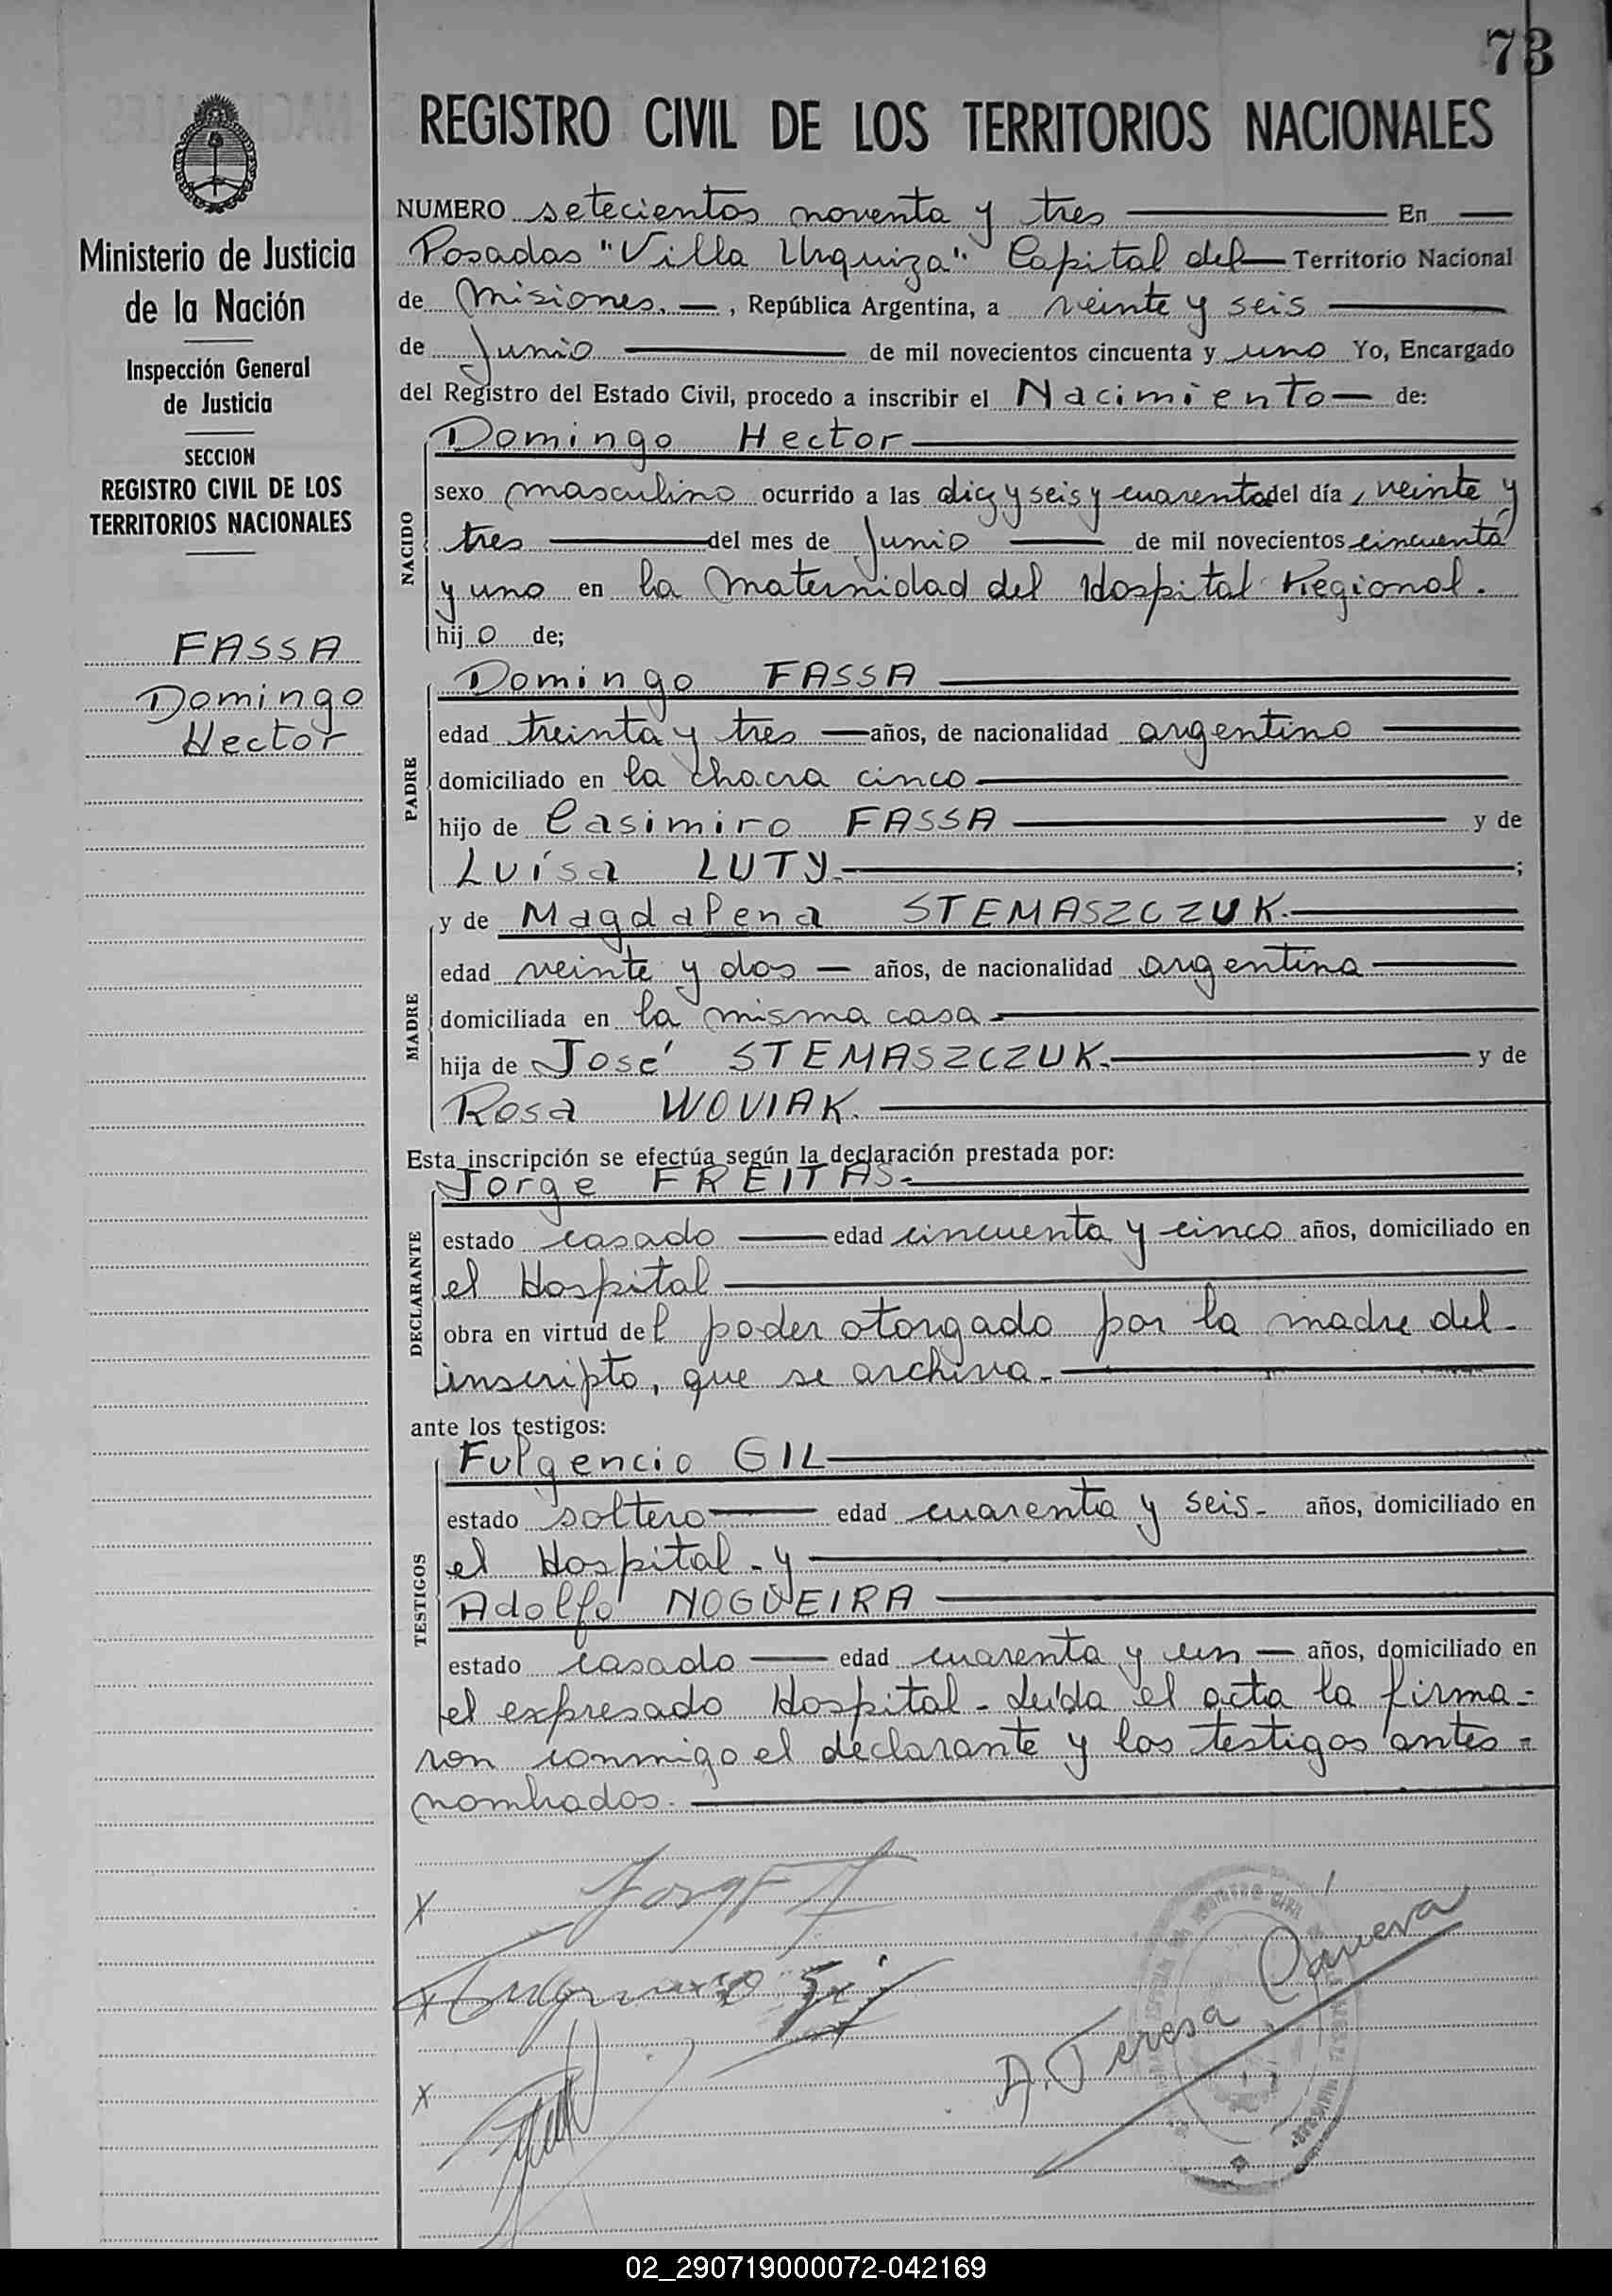 73
REGISTRO CIVIL DE LOS TERRITORIOS NACIONALES
Ministerio de Justicia
de la Nación
Inspección General
de Justicia
SECCION
REGISTRO CIVIL DE LOS
TERRITORIOS NACIONALES
FASSA
Domingo
Hector
NUMERO setecientos noventa y tres En
Posadas "Villa Urquiza" Capital del Territorio Nacional
de Misiones. , República Argentina, a veinte y seis
de Junio de mil novecientos cincuenta y uno Yo, Encargado
del Registro del Estado Civil, procedo a inscribir el Nacimiento de:
NACIDO
Domingo Hector
sexo masculino ocurrido a las diez y seis y cuarenta del día veinte y
tres del mes de Junio de mil novecientos cincuenta
y uno en la Maternidad del Hospital Regional.
hijo de;
PADRE
Domingo FASSA
edad treinta y tres años, de nacionalidad argentino
domiciliado en la chacra cinco
hijo de Casimiro FASSA y de
Luísa LUTY ;
MADRE
y de Magdalena STEMASZCZUK.
edad veinte y dos años, de nacionalidad argentina
domiciliada en la misma casa
hija de José STEMASZCZUK. y de
Rosa WOVIAK.
Esta inscripción se efectúa según la declaración prestada por:
DECLARANTE
Jorge FREITAS.
estado casado edad cincuenta y cinco años, domiciliado en
el Hospital
obra en virtud del poder otorgado por la madre del
inscripto, que se archiva.
ante los testigos:
TESTIGOS
Fulgencio GIL
estado soltero edad cuarenta y seis años, domiciliado en
el Hospital y
Adolfo NOGUEIRA
estado casado edad cuarenta y un años, domiciliado en
el expresado Hospital - Leída el acta la firma-
ron conmigo el declarante y los testigos antes
nombrados.
X
X
X
A. Teresa Cáneva
02_290719000072-042169